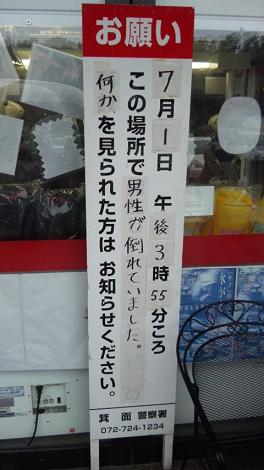 お願い
7月1日 午後3時55分ごろ
この場所で男性が倒れていました。
何か を見られた方は お知らせください。
箕面 警察署
072-724-1234